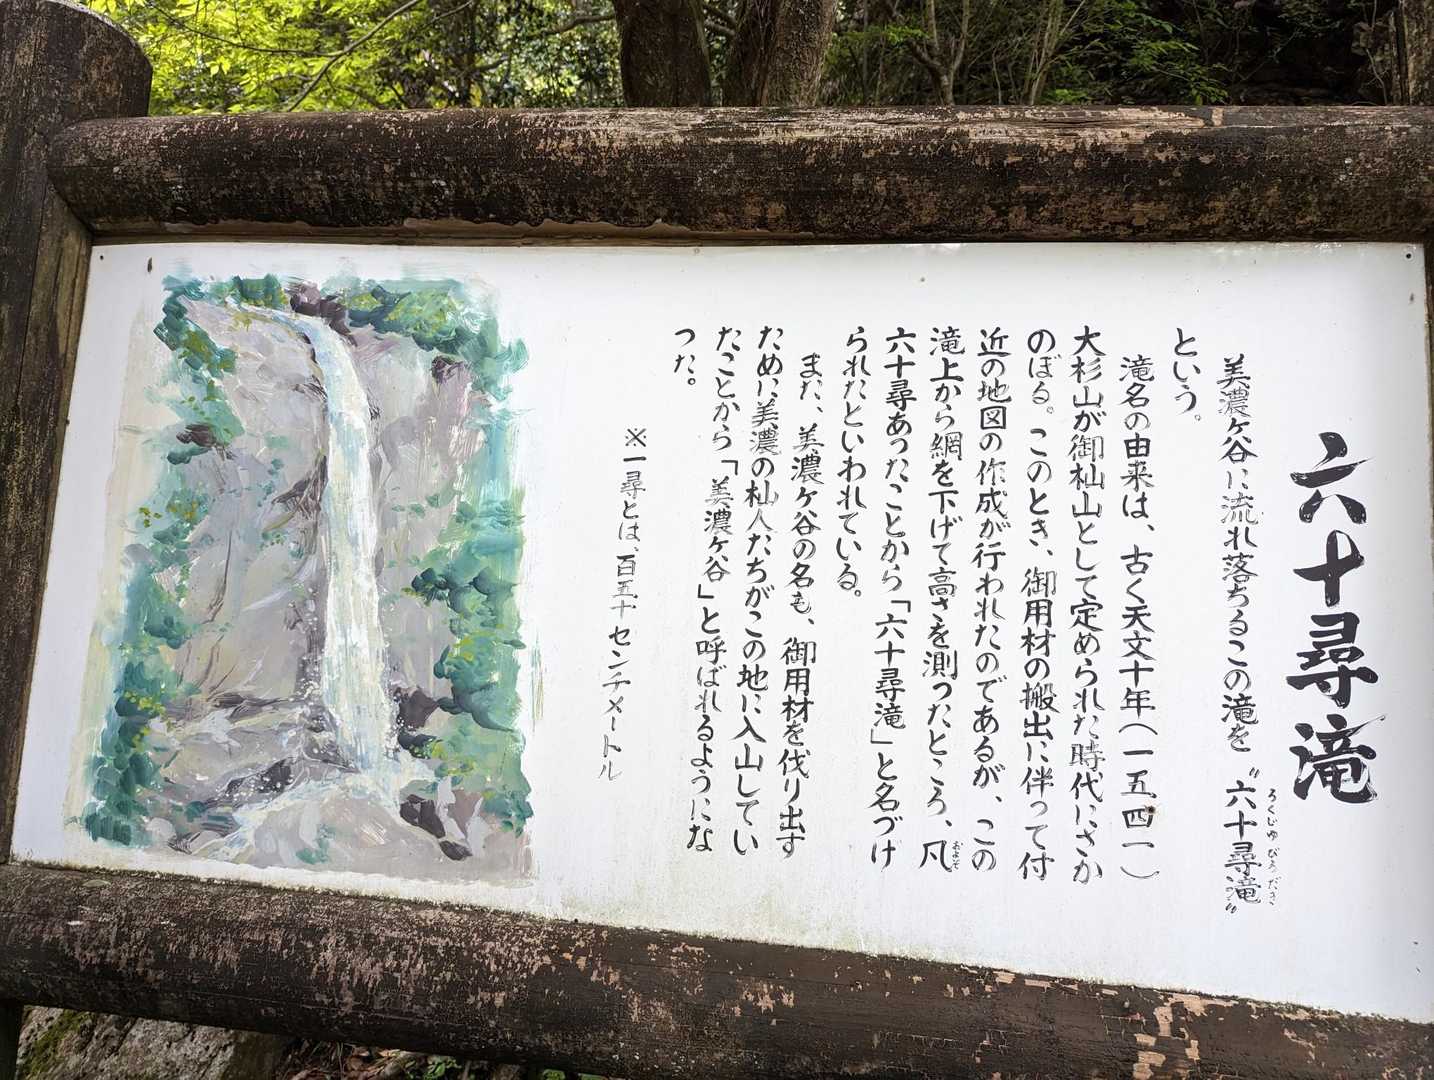 六十尋滝
美濃ヶ谷に流れ落ちるこの滝を〝六十尋滝〟
ろくじゅ ぴろ だき
という。
滝名の由来は、古く天文十年（一五四一）
大杉山が御杣山として定められた時代にさか
のぼる。このとき、御用材の搬出に伴って付
近の地図の作成が行われたのであるが、この
滝上から網を下げて高さを測ったところ、凡
およそ
六十尋あったことから「六十尋滝」と名づけ
られたといわれている。
また、美濃ヶ谷の名も、御用材を伐り出す
ために美濃の杣人たちがこの地に入山してい
たことから「美濃ヶ谷」と呼ばれるようにな
った。
※一尋とは、百五十センチメートル